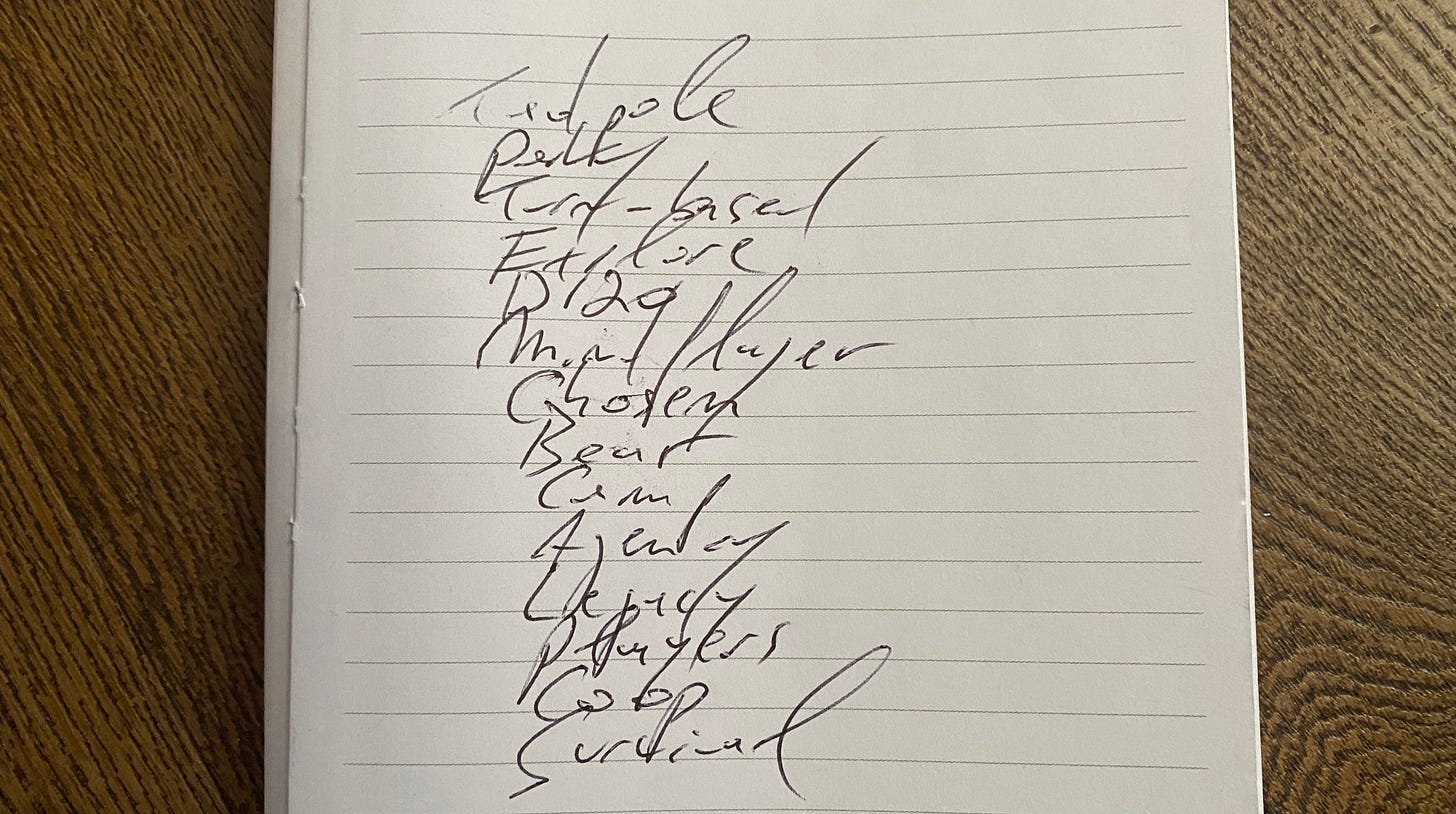 Tadpole
Party
Turn-based
Explore
D120
Mind flayer
Chosen
Beast
Camp
Agency
Legacy
Players
Co op
Survival